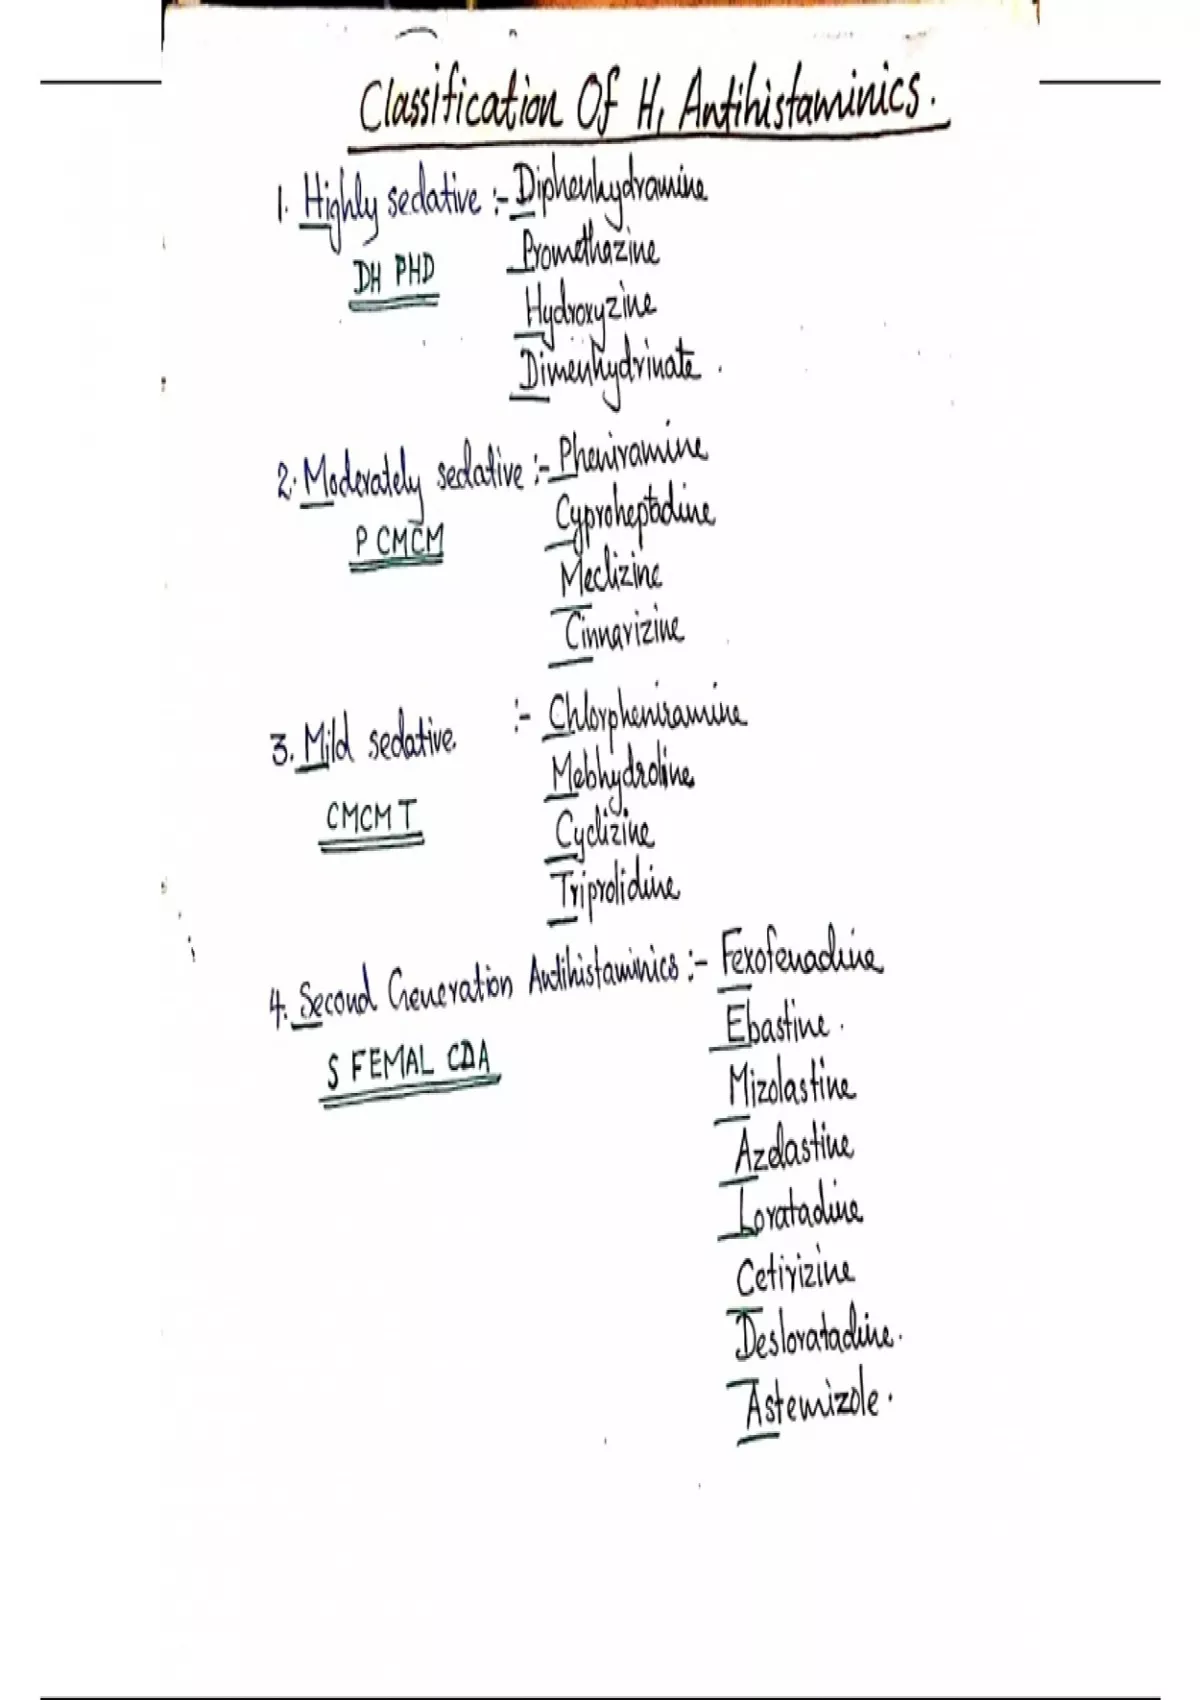 Classification Of H1 Antihistaminics.
1. Highly sedative :- Diphenhydramine
Promethazine
DH PHD
Hydroxyzine
Dimenhydrinate.
2. Moderately sedative :- Pheniramine
Cyproheptadine
P CMCM
Meclizine
Cinnarizine
3. Mild sedative :- Chlorpheniramine
Mebhydroline
CMCM T
Cyclizine
Triprolidine
4. Second Generation Antihistaminics :- Fexofenadine
Ebastine.
S FEMAL CDA
Mizolastine
Azelastine
Loratadine
Cetirizine
Desloratadine.
Astemizole.